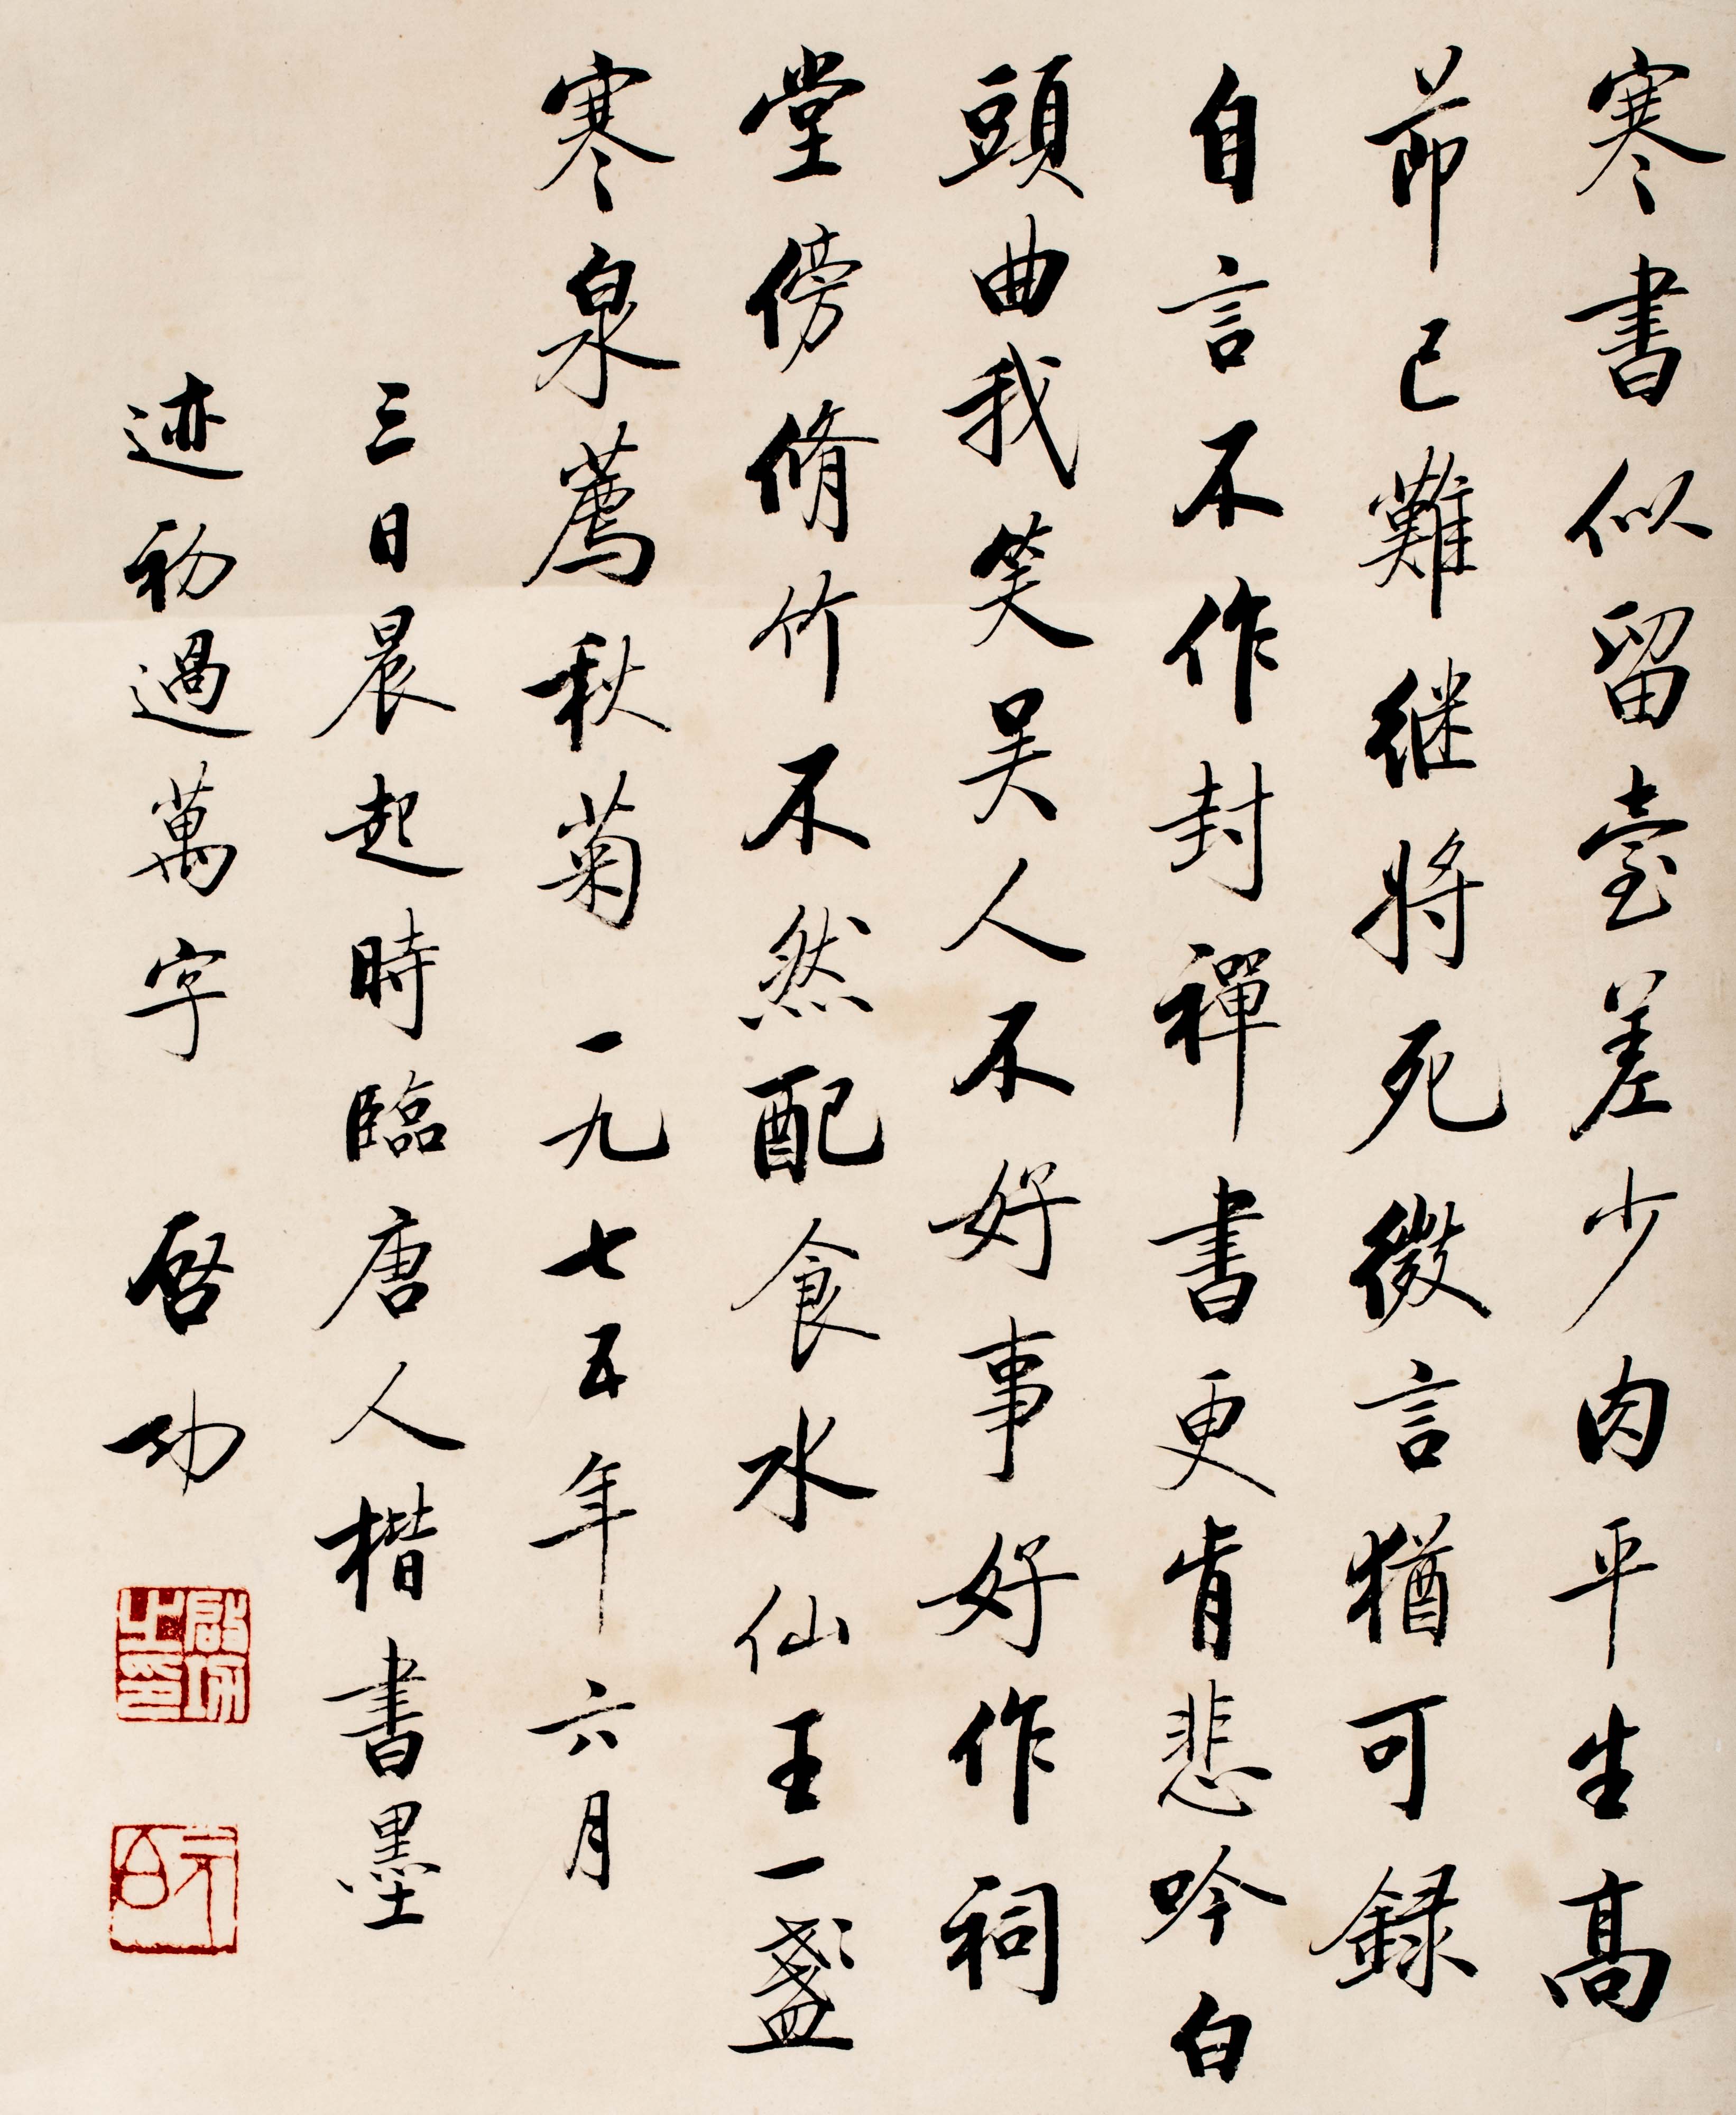 寒書似留臺差少肉平生高
節已難继將死微言猶可録
自言不作封禪書更肯悲吟白
頭曲我笑吴人不好事好作祠
堂傍脩竹不然配食水仙王一盞
寒泉薦秋菊 一九七五年六月
三日晨起時臨唐人楷書墨
迹初過萬字 启功
啟功之印
元白